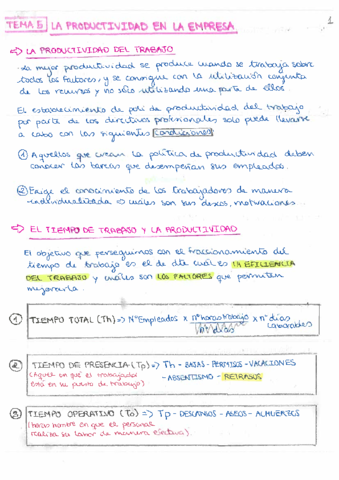 TEMA 5 LA PRODUCTIVIDAD EN LA EMPRESA
1
⇒ LA PRODUCTIVIDAD DEL TRABAJO
La mayor productividad se produce cuando se trabaja sobre
todos los factores, y se consigue con la utilización conjunta
de los recursos y no sólo utilizando una parte de ellos.
El establecimiento de polí de productividad del trabajo
por parte de los directivos profesionales solo puede llevarse
a cabo con las siguientes condiciones:
① Aquellos que crean la política de productividad deben
conocer las tareas que desempeñan sus empleados.
② Exige el conocimiento de los trabajadores de manera
individualizada ⇒ cuáles son sus deseos, motivaciones...
⇒ EL TIEMPO DE TRABAJO Y LA PRODUCTIVIDAD
El objetivo que perseguimos con el fraccionamiento del
tiempo de trabajo es el de ver cuál es la EFICIENCIA
DEL TRABAJO y cuáles son LOS FACTORES que permiten
mejorarla.
① TIEMPO TOTAL (Th) => Nº Empleados x nº horas trabajo x nº días
laborables
② TIEMPO DE PRESENCIA (Tp) => Th - BAJAS - PERMISOS - VACACIONES
(Aquel en que el trabajador
- ABSENTISMO - RETRASOS
está en su puesto de trabajo)
③ TIEMPO OPERATIVO (To) => Tp - DESCANSOS - ASEOS - ALMUERZOS
(horas hombre en que el personal
realiza su labor de manera efectiva).